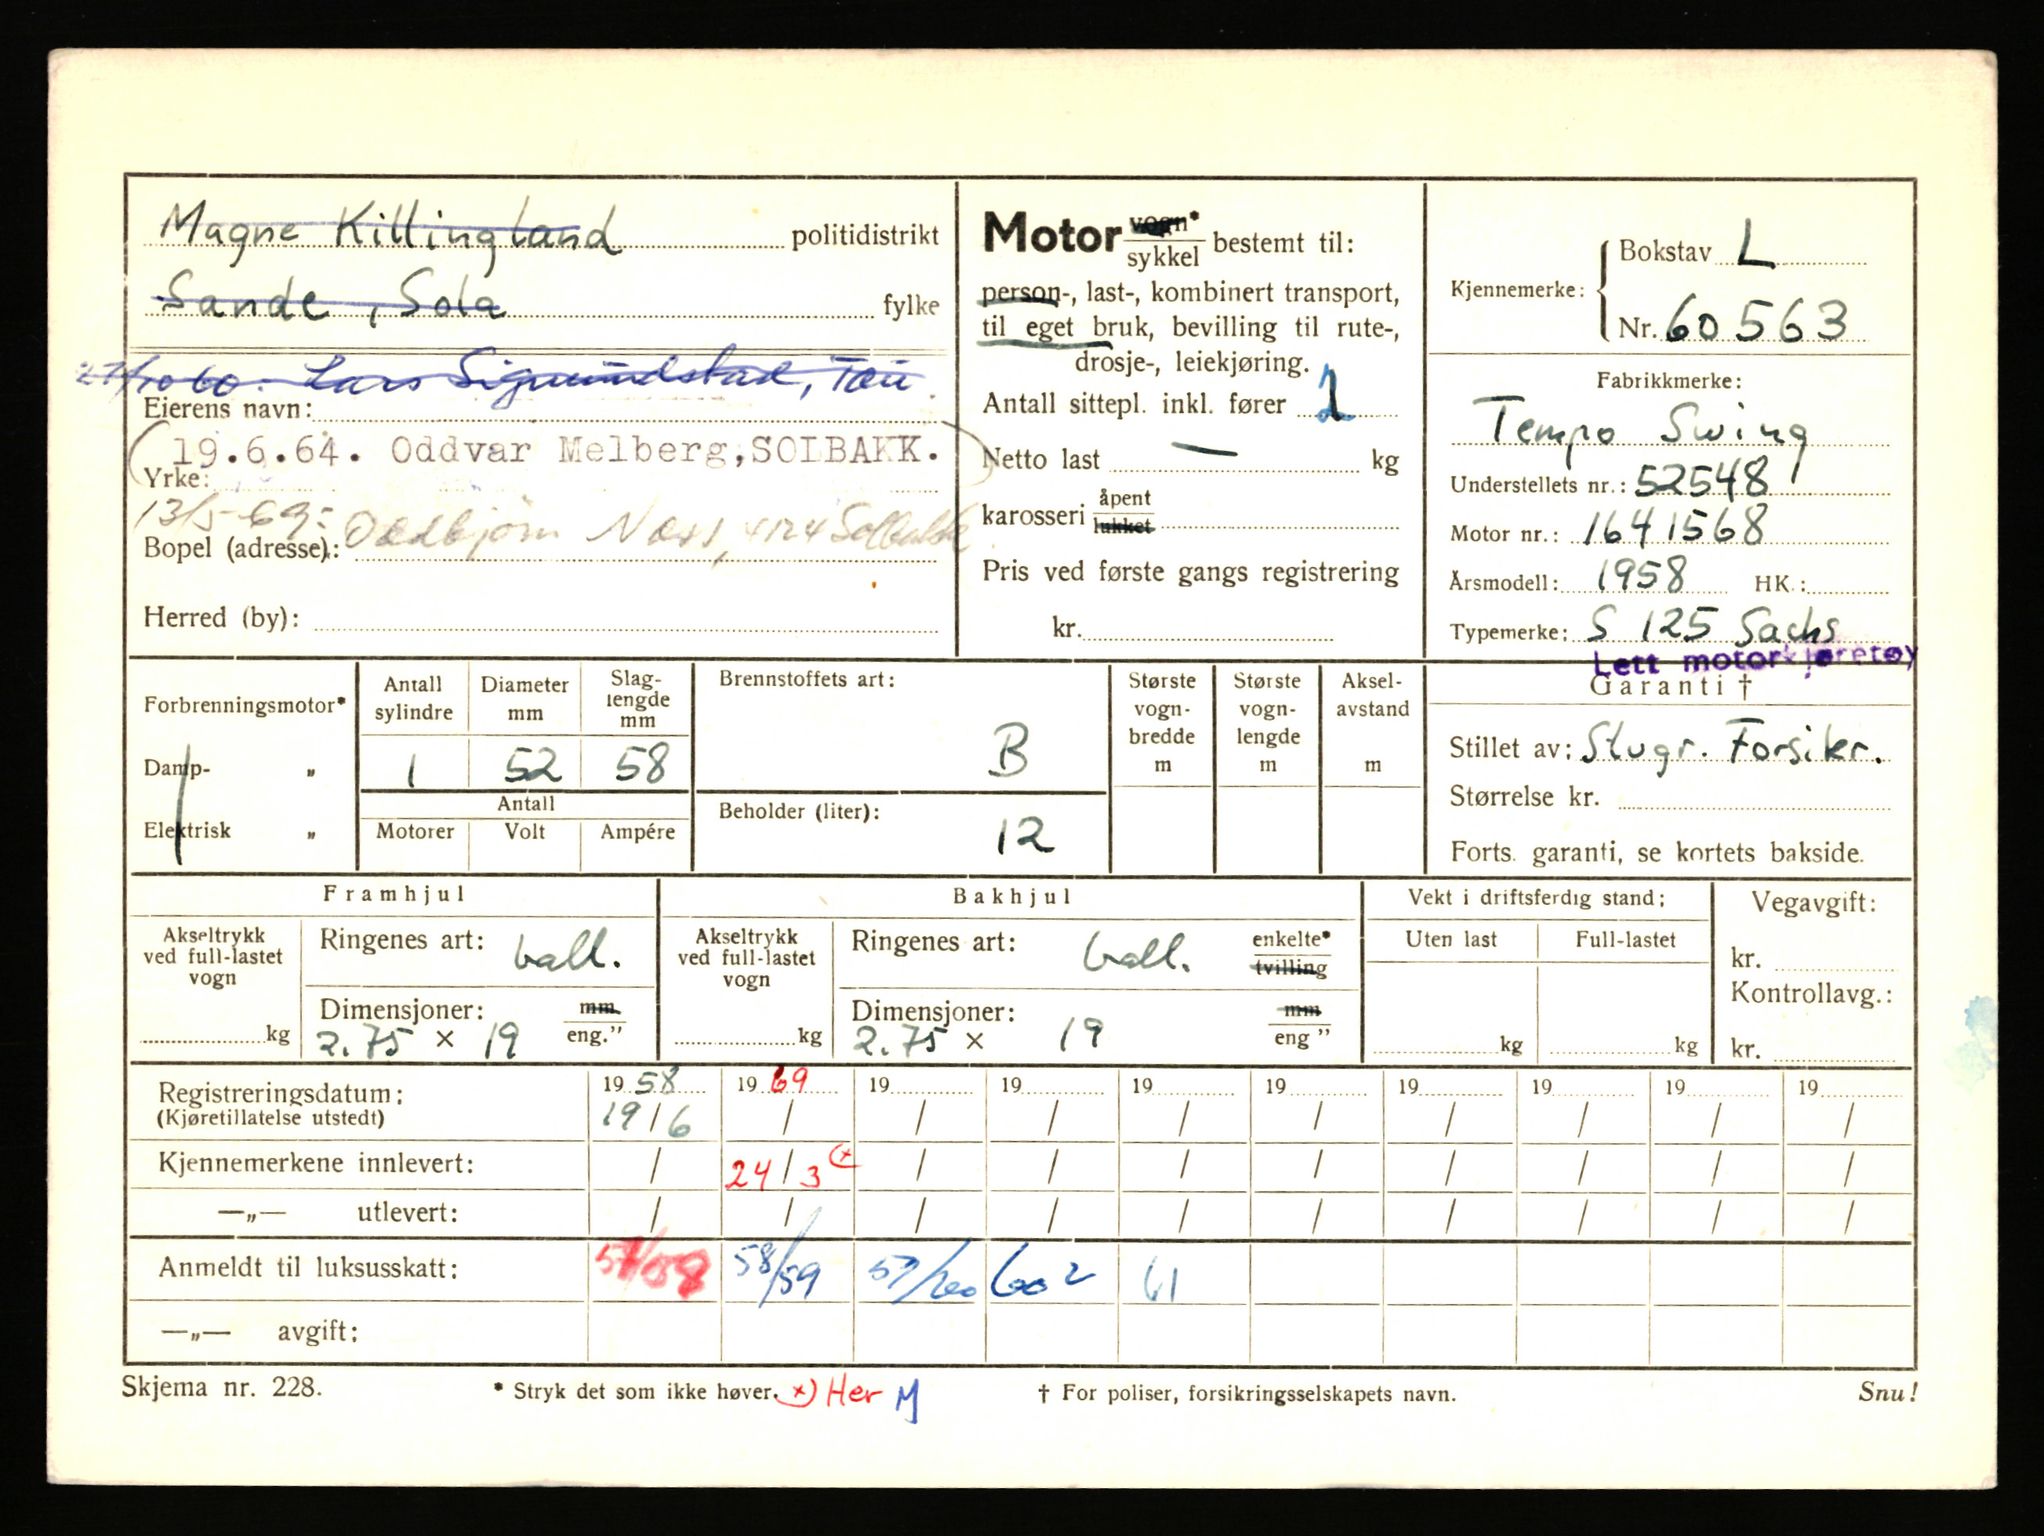 Magne Killingland politidistrikt
Sande, Sola fylke
27/10 60. Lars Sigmundstad, Tau
Eierens navn:
19.6.64. Oddvar Melberg, SOLBAKK.
Yrke:
13/5-69: Oddbjørn Næss, 4124 Solbakk
Bopel (adresse):
Herred (by):
Motor vogn* sykkel bestemt til:
person-, last-, kombinert transport,
til eget bruk, bevilling til rute-,
drosje-, leiekjøring.
Antall sittepl. inkl. fører
Netto last — kg
karosseri åpent lukket
Pris ved første gangs registrering
kr.
Kjennemerke: Bokstav L
Nr. 60563
Fabrikkmerke:
Tempo Swing
Understellets nr.: 52548
Motor nr.: 1641568
Årsmodell: 1958 HK.:
Typemerke: S 125 Sachs
Lett motorkjøretøy
Garanti †
Stillet av: Stvgr. Forsikr.
Størrelse kr.
Forts. garanti, se kortets bakside.
Forbrenningsmotor*
Damp- „
Elektrisk „
Antall sylindre
Diameter mm
Slaglengde mm
1 52 58
Antall
Motorer Volt Ampére
Brennstoffets art:
B
Beholder (liter):
12
Største vognbredde m
Største vognlengde m
Akselavstand m
Framhjul
Akseltrykk ved full-lastet vogn
kg
Ringenes art: ball.
Dimensjoner: mm
2.75 × 19 eng."
Bakhjul
Akseltrykk ved full-lastet vogn
kg
Ringenes art: ball. enkelte* tvilling
Dimensjoner: mm
2.75 × 19 eng "
Vekt i driftsferdig stand:
Uten last Full-lastet
kg kg
Vegavgift:
kr.
Kontrollavg.:
kr.
Registreringsdatum: 19 58 19 69 19 19 19 19 19 19 19 19
(Kjøretillatelse utstedt) 19/6 / / / / / / / / /
Kjennemerkene innlevert: / 24/3 x) / / / / / / / /
—„— utlevert: / / / / / / / / / /
Anmeldt til luksusskatt: 58/59 60 2 61
—„— avgift:
Skjema nr. 228.
* Stryk det som ikke høver. x) Her M
† For poliser, forsikringsselskapets navn.
Snu!